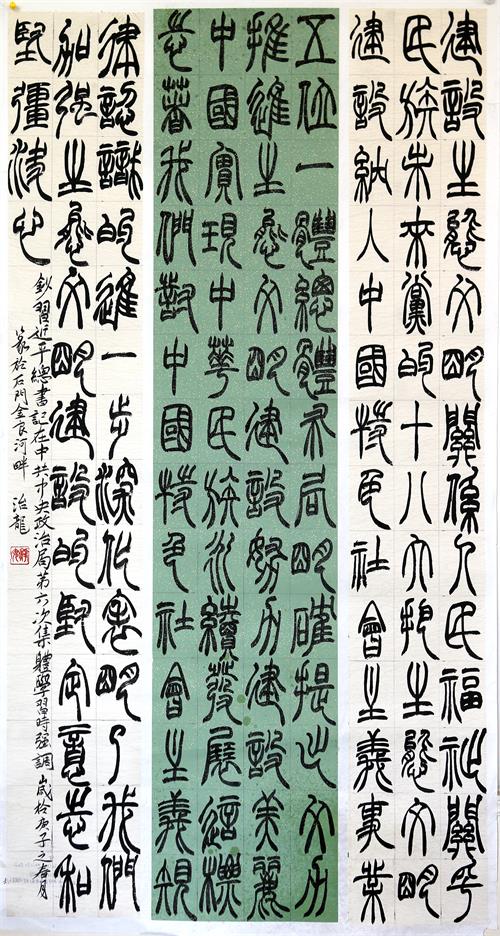 建設生態文明關係人民福祉關乎
民族未來黨的十八大把生態文明
建設納入中國特色社會主義事業
五位一體總體布局明確提出大力
推進生態文明建設努力建設美麗
中國實現中華民族永續發展這標
志著我們對中國特色社會主義規
律認識的進一步深化表明了我們
加強生態文明建設的堅定意志和
堅彊決心
鈔習近平總書記在中共中央政治局第六次集體學習時强調 歲於庚子之春月
篆於石門金良河畔 治龍